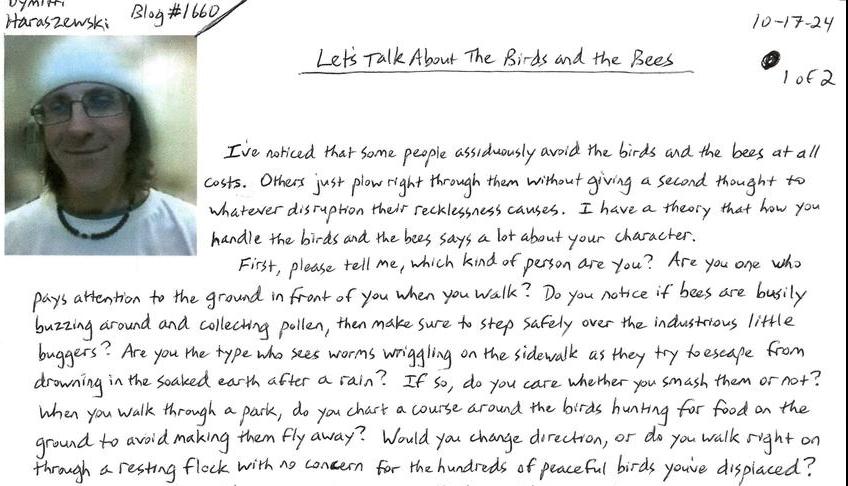 Dymitri
Haraszewski Blog #1660
10-17-24
Let's Talk About The Birds and the Bees
1 of 2
I've noticed that some people assiduously avoid the birds and the bees at all
costs. Others just plow right through them without giving a second thought to
whatever disruption their recklessness causes. I have a theory that how you
handle the birds and the bees says a lot about your character.
First, please tell me, which kind of person are you? Are you one who
pays attention to the ground in front of you when you walk? Do you notice if bees are busily
buzzing around and collecting pollen, then make sure to step safely over the industrious little
buggers? Are you the type who sees worms wriggling on the sidewalk as they try to escape from
drowning in the soaked earth after a rain? If so, do you care whether you smash them or not?
When you walk through a park, do you chart a course around the birds hunting for food on the
ground to avoid making them fly away? Would you change direction, or do you walk right on
through a resting flock with no concern for the hundreds of peaceful birds you've displaced?